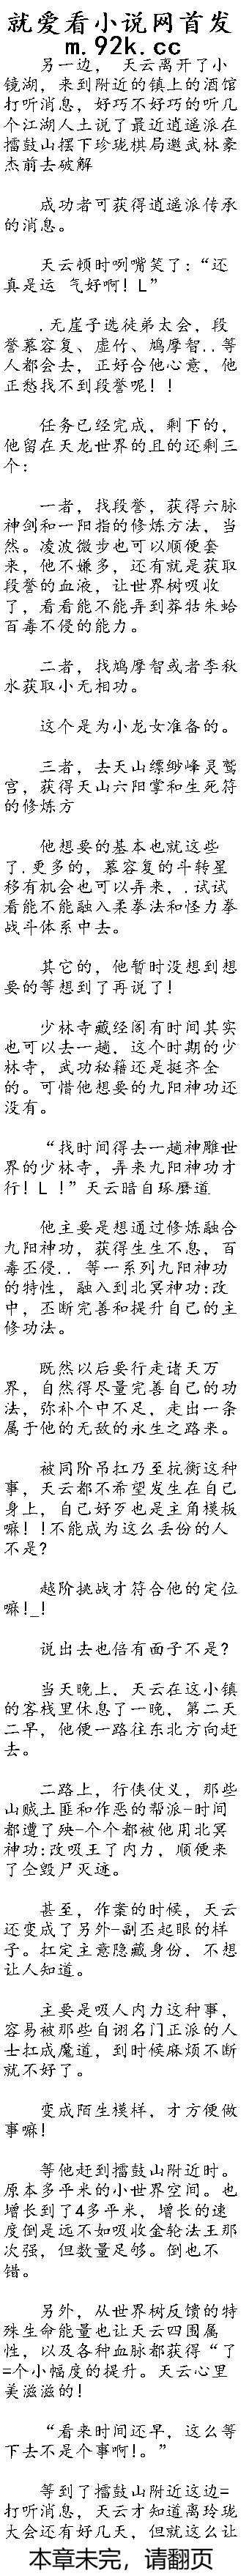 就爱看小说网首发
m.92k.cc
另一边， 天云离开了小
镜湖，来到附近的镇上的酒馆
打听消息，好巧不好巧的听几
个江湖人士说了最近逍遥派在
擂鼓山摆下珍珑棋局邀武林豪
杰前去破解
成功者可获得逍遥派传承
的消息。
天云顿时咧嘴笑了:“还
真是运 气好啊！L”
.无崖子选徒弟太会，段
誉慕容复、虚竹、鸠摩智..等
人都会去，正好合他心意，他
正愁找不到段誉呢！！
任务已经完成，剩下的，
他留在天龙世界的且的还剩三
个:
一者，找段誉，获得六脉
神剑和一阳指的修炼方法，当
然。凌波微步也可以顺便套
来，他不嫌多，还有就是获取
段誉的血液，让世界树吸收
了，看看能不能弄到莽牯朱蛤
百毒不侵的能力。
二者，找鸠摩智或者李秋
水获取小无相功。
这个是为小龙女准备的。
三者，去天山缥缈峰灵鹫
宫，获得天山六阳掌和生死符
的修炼方
他想要的基本也就这些
了.更多的，慕容复的斗转星
移有机会也可以弄来，.试试
看能不能融入柔拳法和怪力拳
战斗体系中去。
其它的，他暂时没想到想
要的等想到了再说了！
少林寺藏经阁有时间其实
也可以去一趟，这个时期的少
林寺，武功秘籍还是挺齐全
的。可惜他想要的九阳神功还
没有。
“找时间得去一趟神雕世
界的少林寺，弄来九阳神功才
行！L！”天云暗自琢磨道
他主要是想通过修炼融合
九阳神功，获得生生不息，百
毒丕侵.. 等一系列九阳神功
的特性，融入到北冥神功:改
中，丕断完善和提升自己的主
修功法。
既然以后要行走诸天万
界，自然得尽量完善自己的功
法，弥补个中不足，走出一条
属于他的无敌的永生之路来。
被同阶吊扛乃至抗衡这种
事，天云都不希望发生在自己
身上，自己好歹也是主角模板
嘛！！不能成为这么丢份的人
不是？
越阶挑战才符合他的定位
嘛！_！
说出去也倍有面子不是？
当天晚上，天云在这小镇
的客栈里休息了一晚，第二天
二早，他便一路往东北方向赶
去。
二路上，行侠仗义，那些
山贼土匪和作恶的帮派-时间
都遭了殃-个个都被他用北冥
神功:改吸王了内力，顺便来
了仝毁尸灭迹。
甚至，作案的时候，天云
还变成了另外-副丕起眼的样
子。扛定主意隐藏身份，不想
让人知道。
主要是吸人内力这种事，
容易被那些自诩名门正派的人
士扛成魔道，到时候麻烦不断
就不好了。
变成陌生模样，才方便做
事嘛！
等他赶到擂鼓山附近时。
原本多平米的小世界空间。也
增长到了4多平米，增长的速
度倒是远不如吸收金轮法王那
次强，但数量足够。倒也不
错。
另外，从世界树反馈的特
殊生命能量也让天云四围属
性，以及各种血脉都获得“了
=个小幅度的提升。天云心里
美滋滋的！
“看来时间还早，这么等
下去不是个事啊！。”
等到了擂鼓山附近这边=
打听消息，天云才知道离玲珑
大会还有好几天，但就这么让
本章未完，请翻页